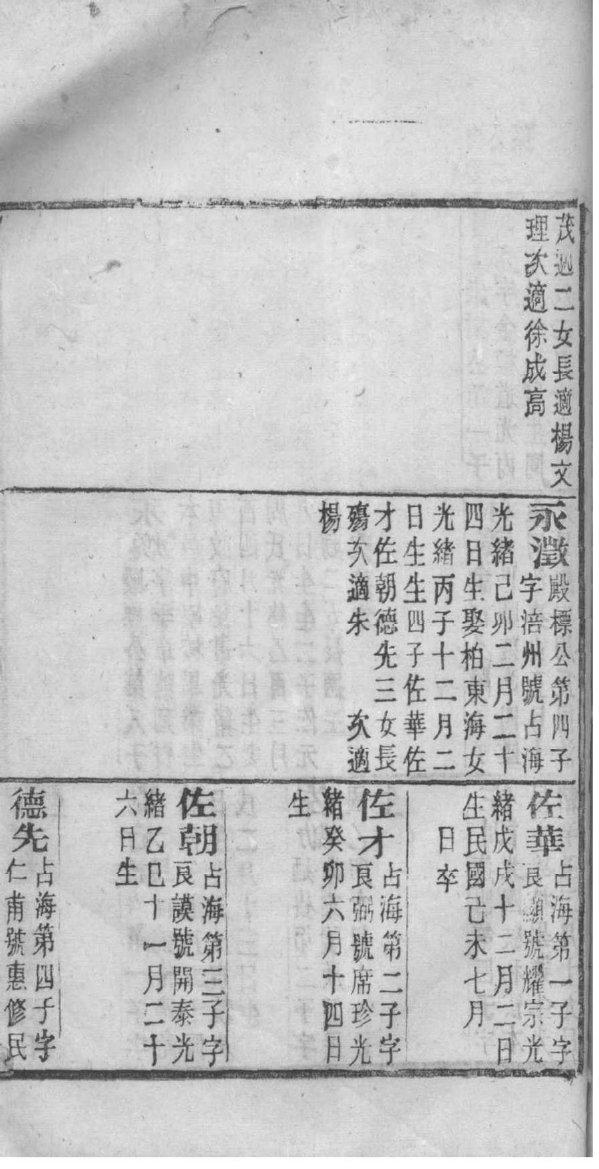 茂迥二女長適楊文
理次適徐成高
永澂殿標公第四子
字涪州號占海
光緒己卯二月二十
四日生娶柏東海女
光緒丙子十二月二
日生生四子佐華佐
才佐朝德先三女長
殤次適朱 次適
楊
佐華占海第一子字
良顯號耀宗光
緒戊戌十二月二日
生民國己未七月
日卒
佐才占海第二子字
良弼號席珍光
緒癸卯六月十四日
生
佐朝占海第三子字
良謨號開泰光
緒乙巳十一月二十
六日生
德先占海第四子字
仁甫號惠修民